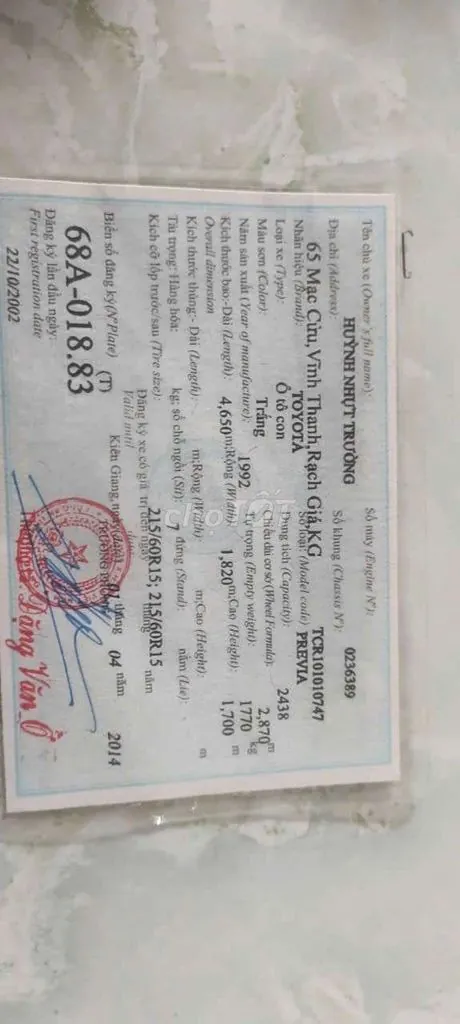 Tên chủ xe (Owner's full name):
HUỲNH NHỰT TRƯỜNG
Số máy (Engine N°): 0236389
Địa chỉ (Address):
Số khung (Chassis N°): TCR101010747
65 Mạc Cửu, Vĩnh Thanh, Rạch Giá, KG
Nhãn hiệu (Brand): TOYOTA
Số loại: (Model code) PREVIA
Loại xe (Type): Ô tô con
Dung tích (Capacity): 2438
Màu sơn (Color): Trắng
Chiều dài cơ sở (Wheel Formula): 2,870 m
Năm sản xuất (Year of manufacture): 1992
Tự trọng (Empty weight): 1770 kg
Kích thước bao:-Dài (Length): 4,650 m; Rộng (Width): 1,820 m; Cao (Height): 1,700 m
Overall dimension
Kích thước thùng:- Dài (Length): m; Rộng (Width): m; Cao (Height): m
Tải trọng: Hàng hóa: kg; số chỗ ngồi (Sit): 7 đứng (Stand): nằm (Lie):
Kích cỡ lốp trước/sau (Tire size): 215/60R15; 215/60R15
Đăng ký xe có giá trị đến ngày tháng năm
Valid until
Biển số đăng ký (N° Plate) (T)
Kiên Giang, ngày (date) 01 tháng 04 năm 2014
68A-018.83
TRƯỞNG PHÒNG
Đăng ký lần đầu ngày:
First registration date
22/10/2002
Đặng Văn
chợTỐT